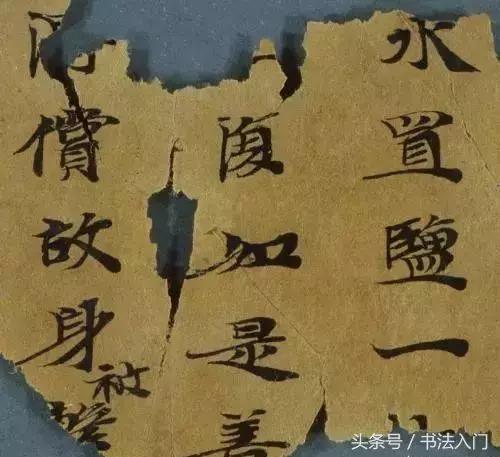 水置鹽一
復如是善
償故身被
头条号 / 书法入门